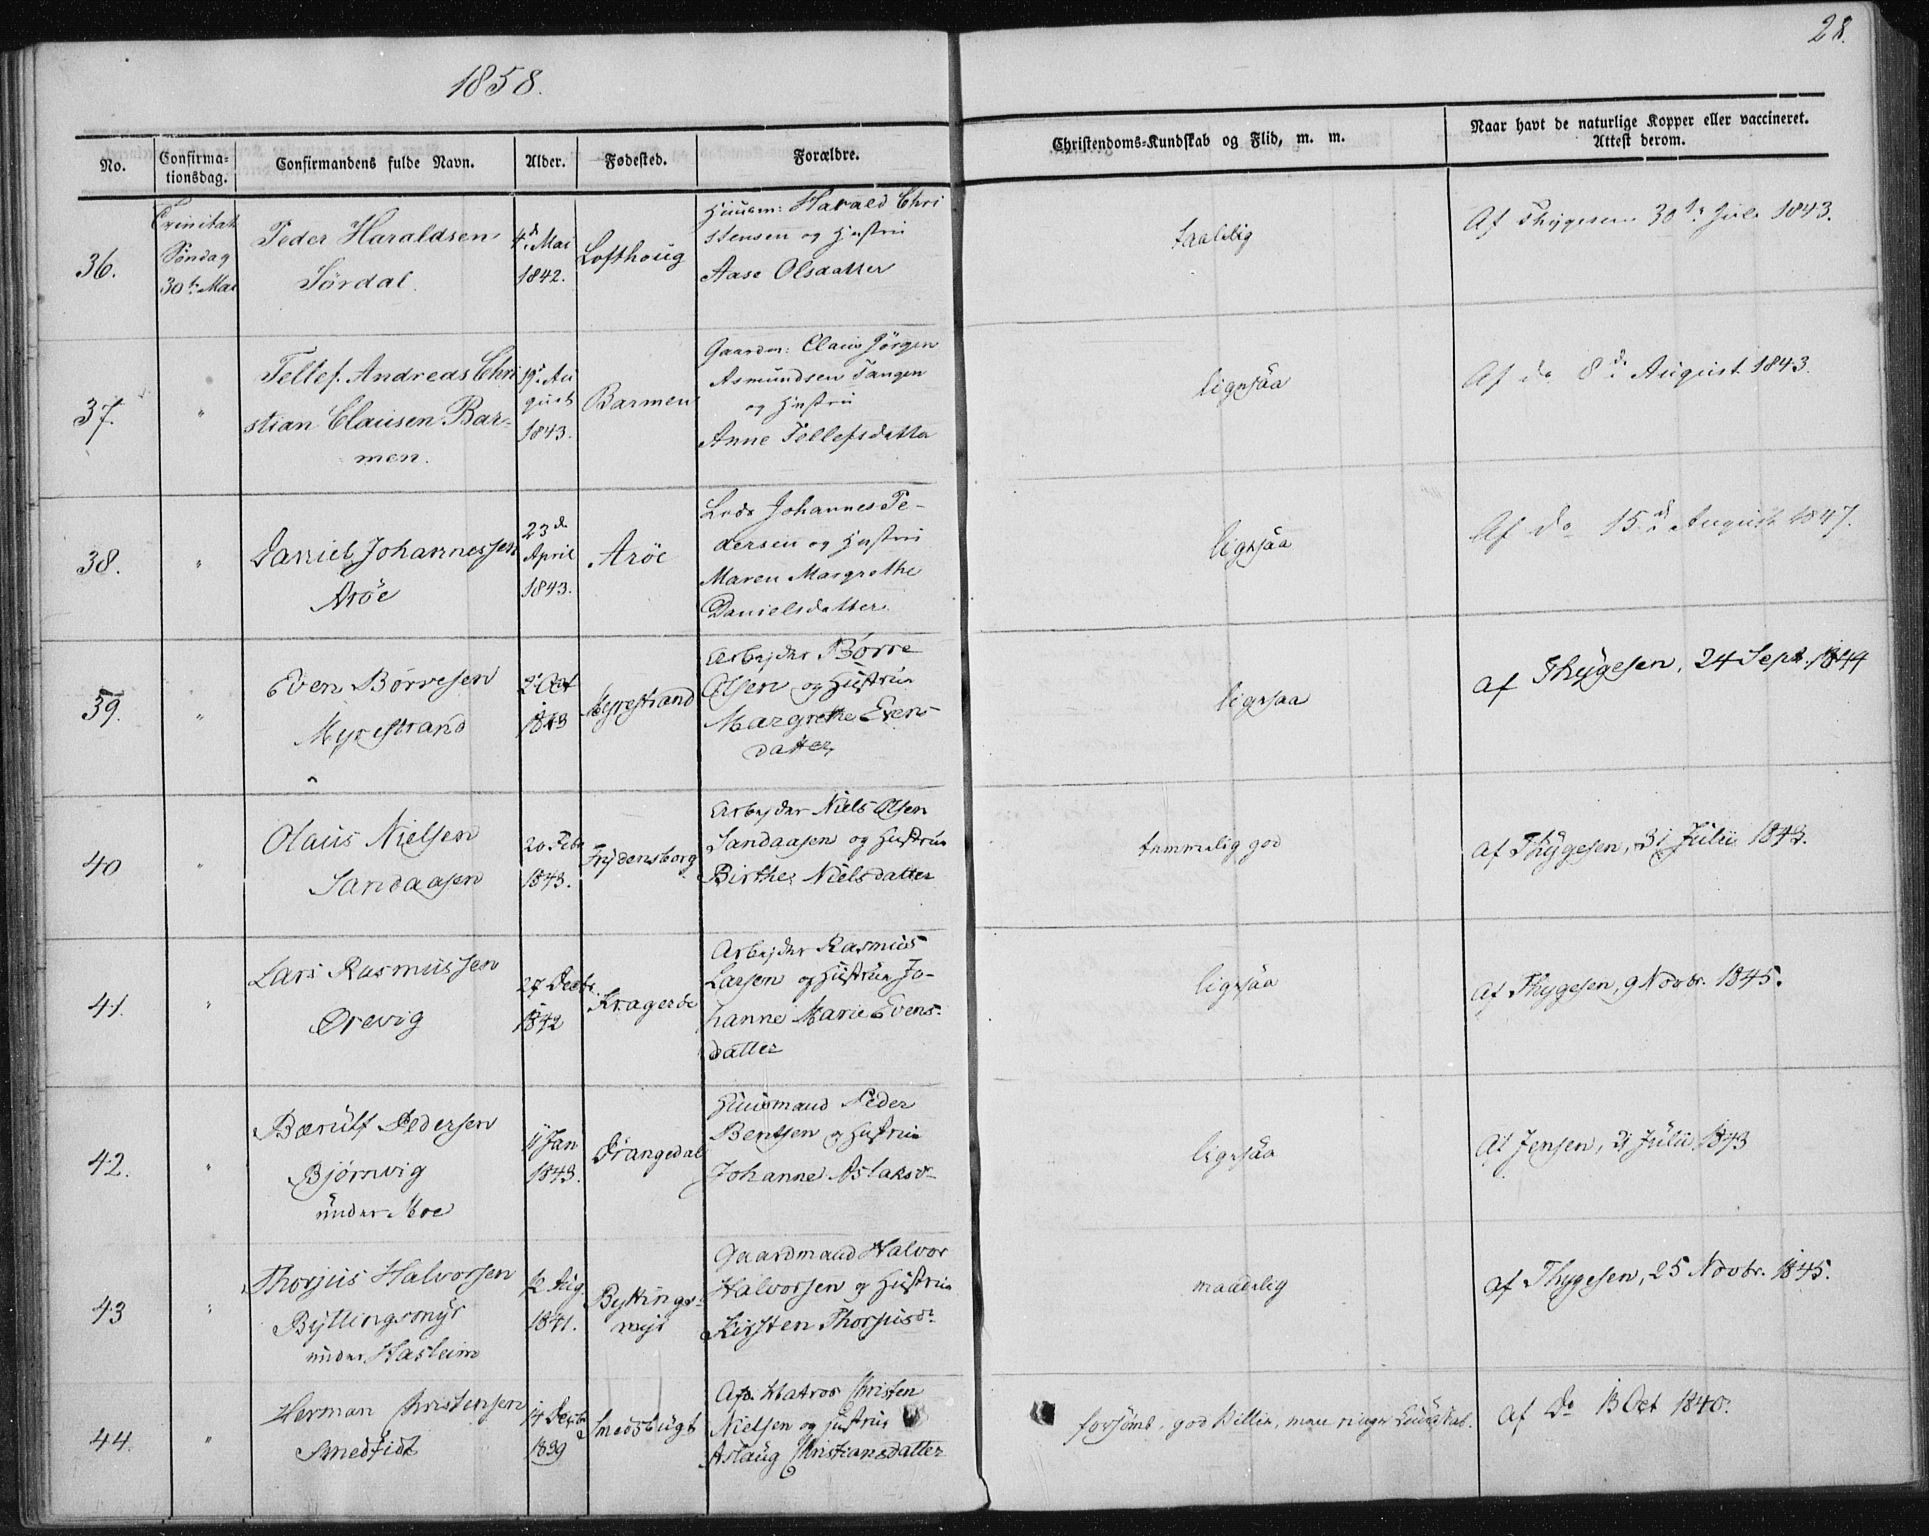 28.
1858.
No.
Confirma-
tionsdag.
Confirmandens fulde Navn.
Alder.
Fødested.
Forældre.
Christendoms-Kundskab og Flid, m. m.
Naar havt de naturlige Kopper eller vaccineret.
Attest derom.
36.
Trinitatis
Søndag
30te Mai
Peder Haraldsen
Sørdal
4de Mai
1842.
Lofthoug
Huusm: Harald Chri
stensen og Hustru
Aase Olsdatter
taalelig
Af Thygesen 30te Juli 1843.
37.
"
Tellef Andreas Chri
stian Clausen Bar-
men.
19de Au
gust
1843.
Barmen
Gaardm: Claus Jørgen
Asmundsen Tangen
og Hustru
Anne Tellefsdatter
ligesaa
Af do 8de August 1843.
38.
"
Daniel Johannessen
Arøe
23de
April
1843.
Arøe
Lods Johannes Pe-
dersen og Hustru
Maren Margrethe
Danielsdatter
ligesaa
Af do 15de August 1847.
39.
"
Even Børresen
Myrestrand
2 Oct
1843
Myrestrand
Arbejder Børre
Olsen og Hustru
Margrethe Even-
datter
ligesaa
af Thygesen, 24 Sept. 1844
40
"
Olaus Nielsen
Sandaasen
20 Febr
1843.
Frydensborg
Arbejder Niels Olsen
Sandaasen og Hustru
Birthe Nielsdatter
temmelig god
af Thygesen, 31 Julii 1843.
41.
"
Lars Rasmussen
Ørevig
27 Decbr.
1842
Kragerøe
Arbejder Rasmus
Larsen og Hustru Jo-
hanne Marie Evens-
datter
ligesaa
af Thygesen, 9 Novbr. 1845.
42.
"
Bærulf Pedersen
Bjørnvig
under Moe
11 Jan
1843.
Drangedal
Huusmand Peder
Bentsen og Hustru
Johanne Aslaksd-
ligesaa
Af Jensen, 31 Julii 1843
43
"
Thorjus Halvorsen
Byttingsmyr
under Hasleim
12 Aug
1841.
Byttings-
myr
Gaardmand Halvor
Halvorsen og Hustru
Kirsten Thorjusd-
maadelig
af Thygesen, 25 Novbr. 1845.
44.
"
Herman Christensen
14 Decbr
1839
Smedsbugt
Afd. Matros Christen
Nielsen og Hustru
Aslaug Christiansdatter
forsømt, god Villie, men ringe Kundskab.
af Do 13 Oct 1840.